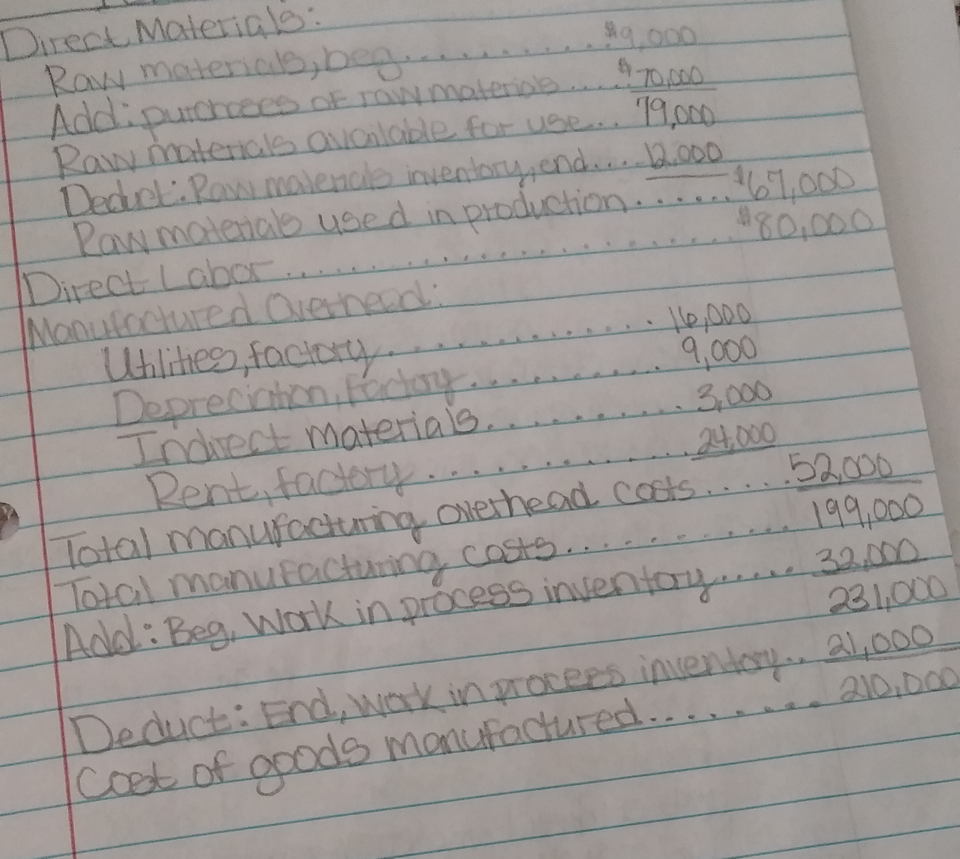 Direct Materials:
Raw materials, beg............$9,000
Add: purchases of raw materials....$70,000
Raw materials available for use... 79,000
Deduct: Raw materials inventory, end.... 12,000
Raw materials used in production....... $67,000
Direct Labor............................ $80,000
Manufactured Overhead:
Utilities, factory.............. 16,000
Depreciation, Factory........... 9,000
Indirect materials.......... 3,000
Rent, factory.............. 24,000
Total manufacturing overhead costs..... 52,000
Total manufacturing costs........... 199,000
Add: Beg. Work in process inventory..... 32,000
231,000
Deduct: End, work in process inventory.. 21,000
Cost of goods manufactured......... 210,000